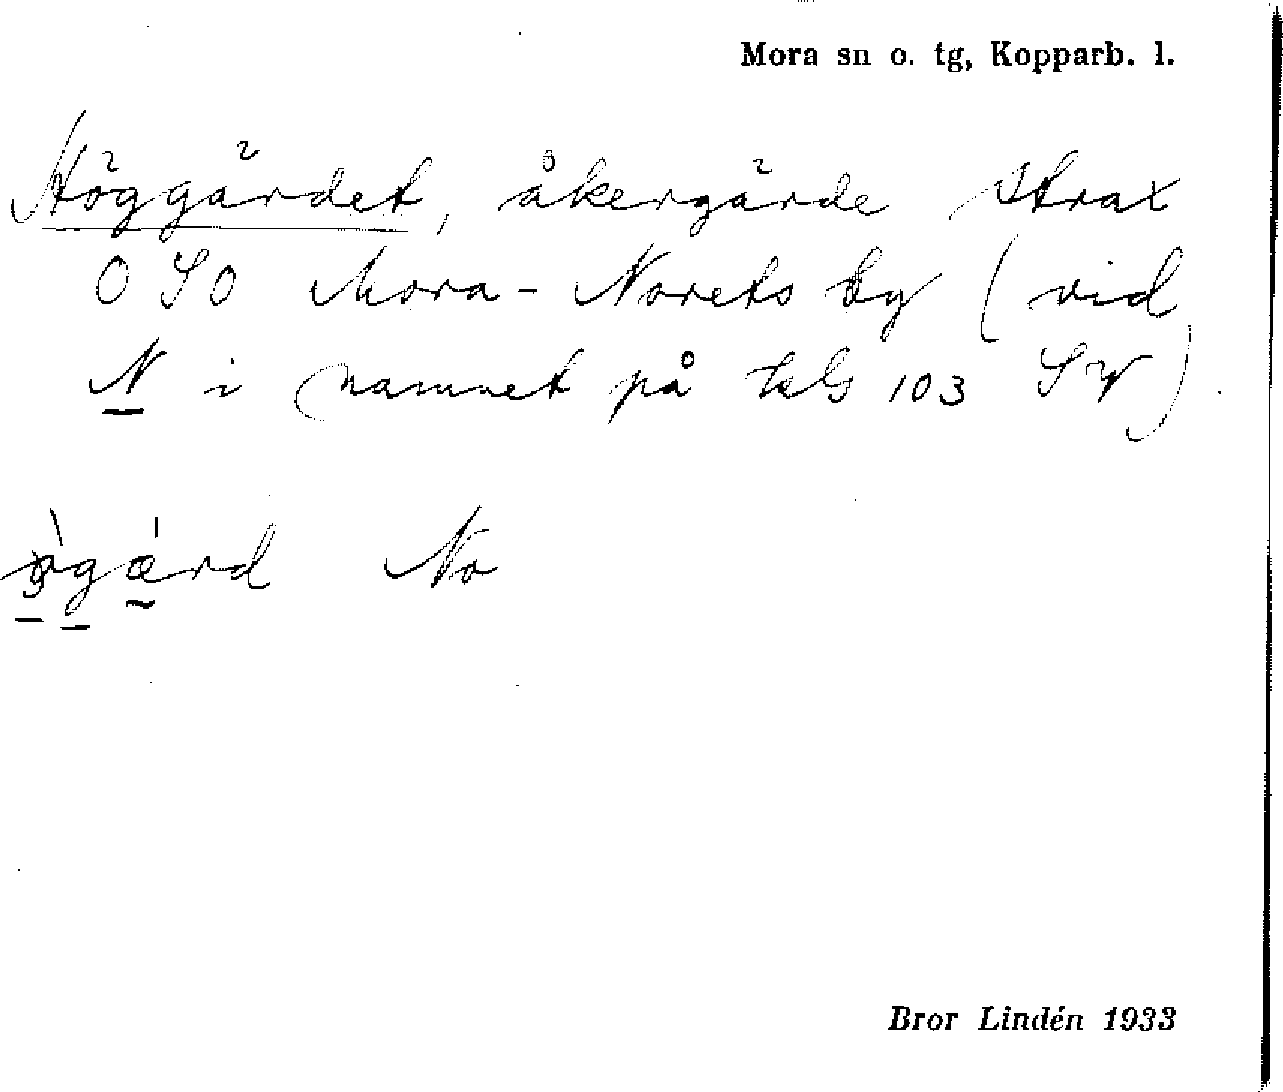 Mora sn o. tg, Kopparb. l.
Höggärdet, åkergärde strax
OSO Mora-Norets by (vid
N i namnet på kbl 103 SV).
No
Bror Lindén 1933